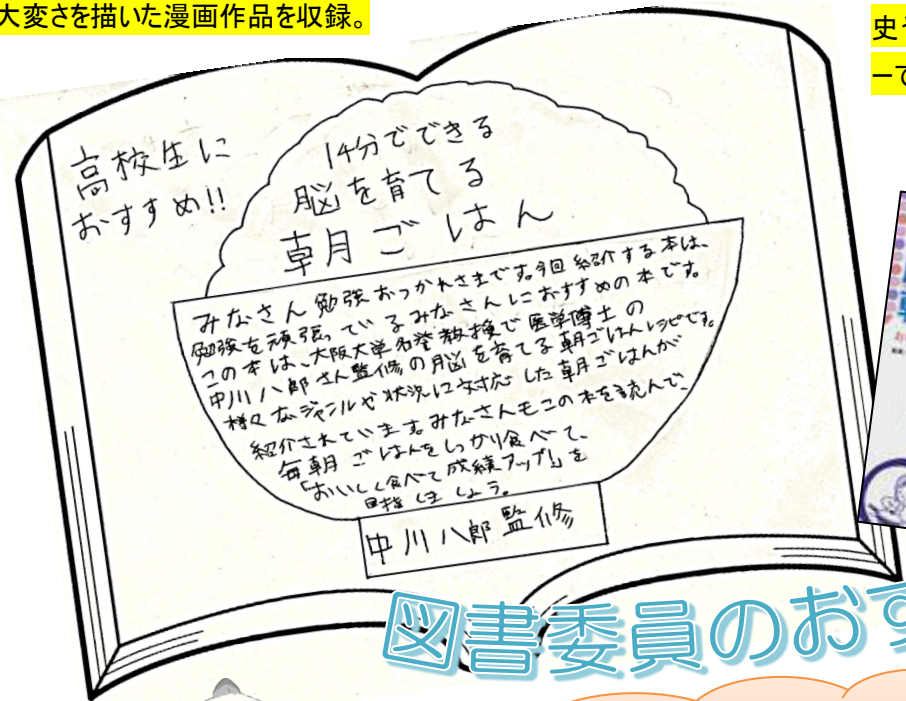 大変さを描いた漫画作品を収録。
高校生に
おすすめ!!
14分でできる
脳を育てる
朝ごはん
みなさん勉強おつかれさまです。今回紹介する本は、
勉強を頑張っているみなさんにおすすめの本です。
この本は、大阪大学名誉教授で医学博士の
中川八郎さん監修の脳を育てる朝ごはんレシピです。
様々なジャンルや状況に対応した朝ごはんが
紹介されています。みなさんもこの本を読んで、
毎朝ごはんをしっかり食べて、
「おいしく食べて成績アップ!」を
目指しましょう。
中川八郎監修
図書委員のおす